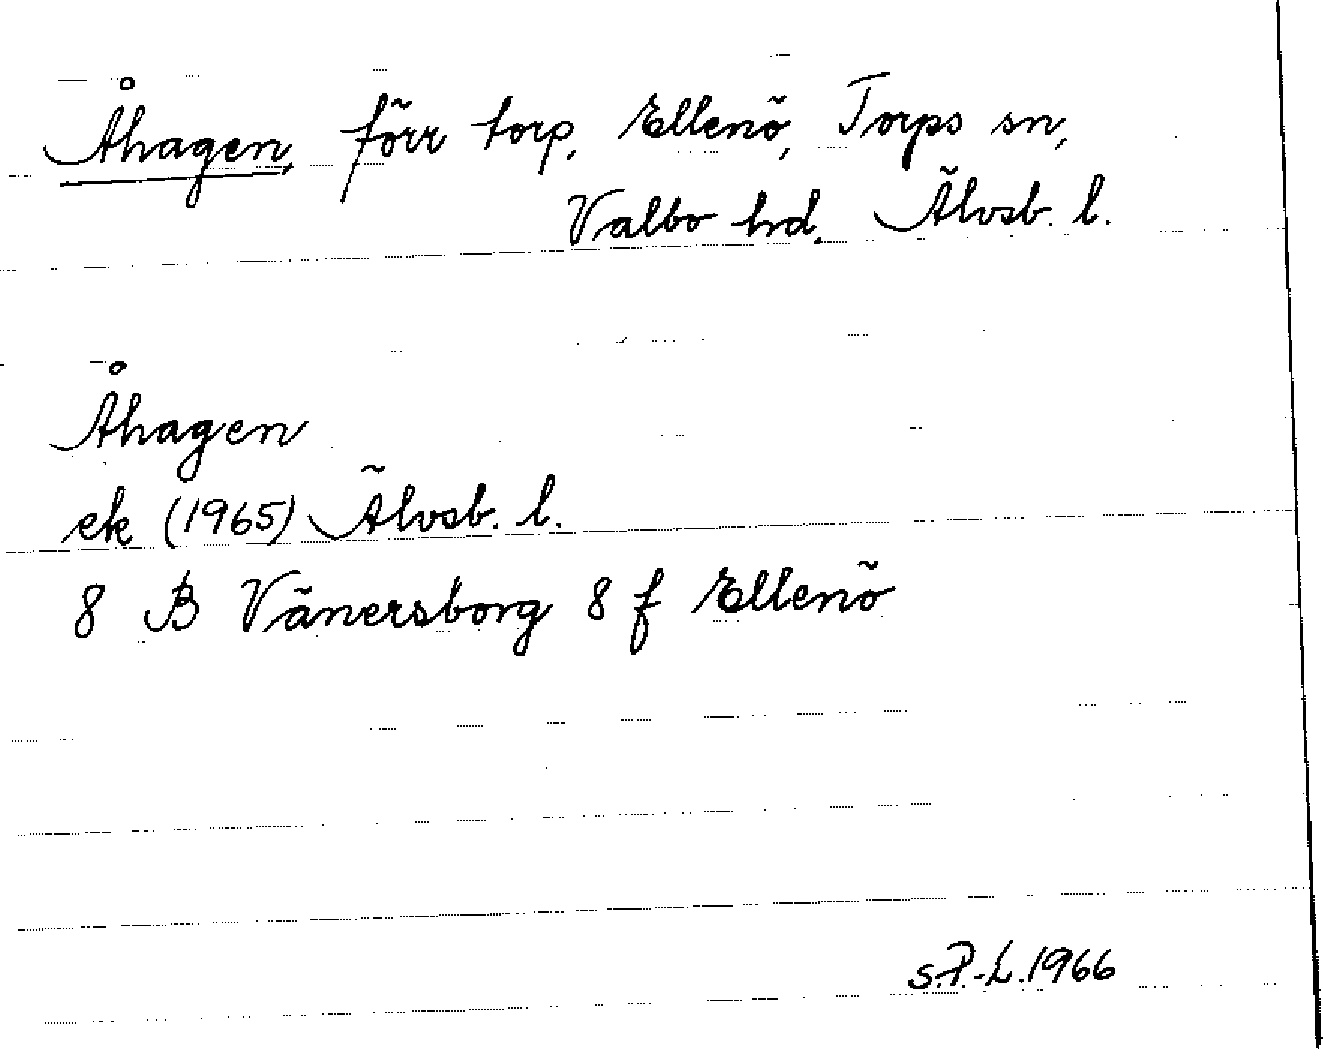 Åhagen, förr torp, Ellenö, Torps sn,
Valbo hd. Älvsb. l.
Åhagen
ek (1965) Älvsb. l.
8 B Vänersborg 8 f Ellenö
S.P.-L. 1966